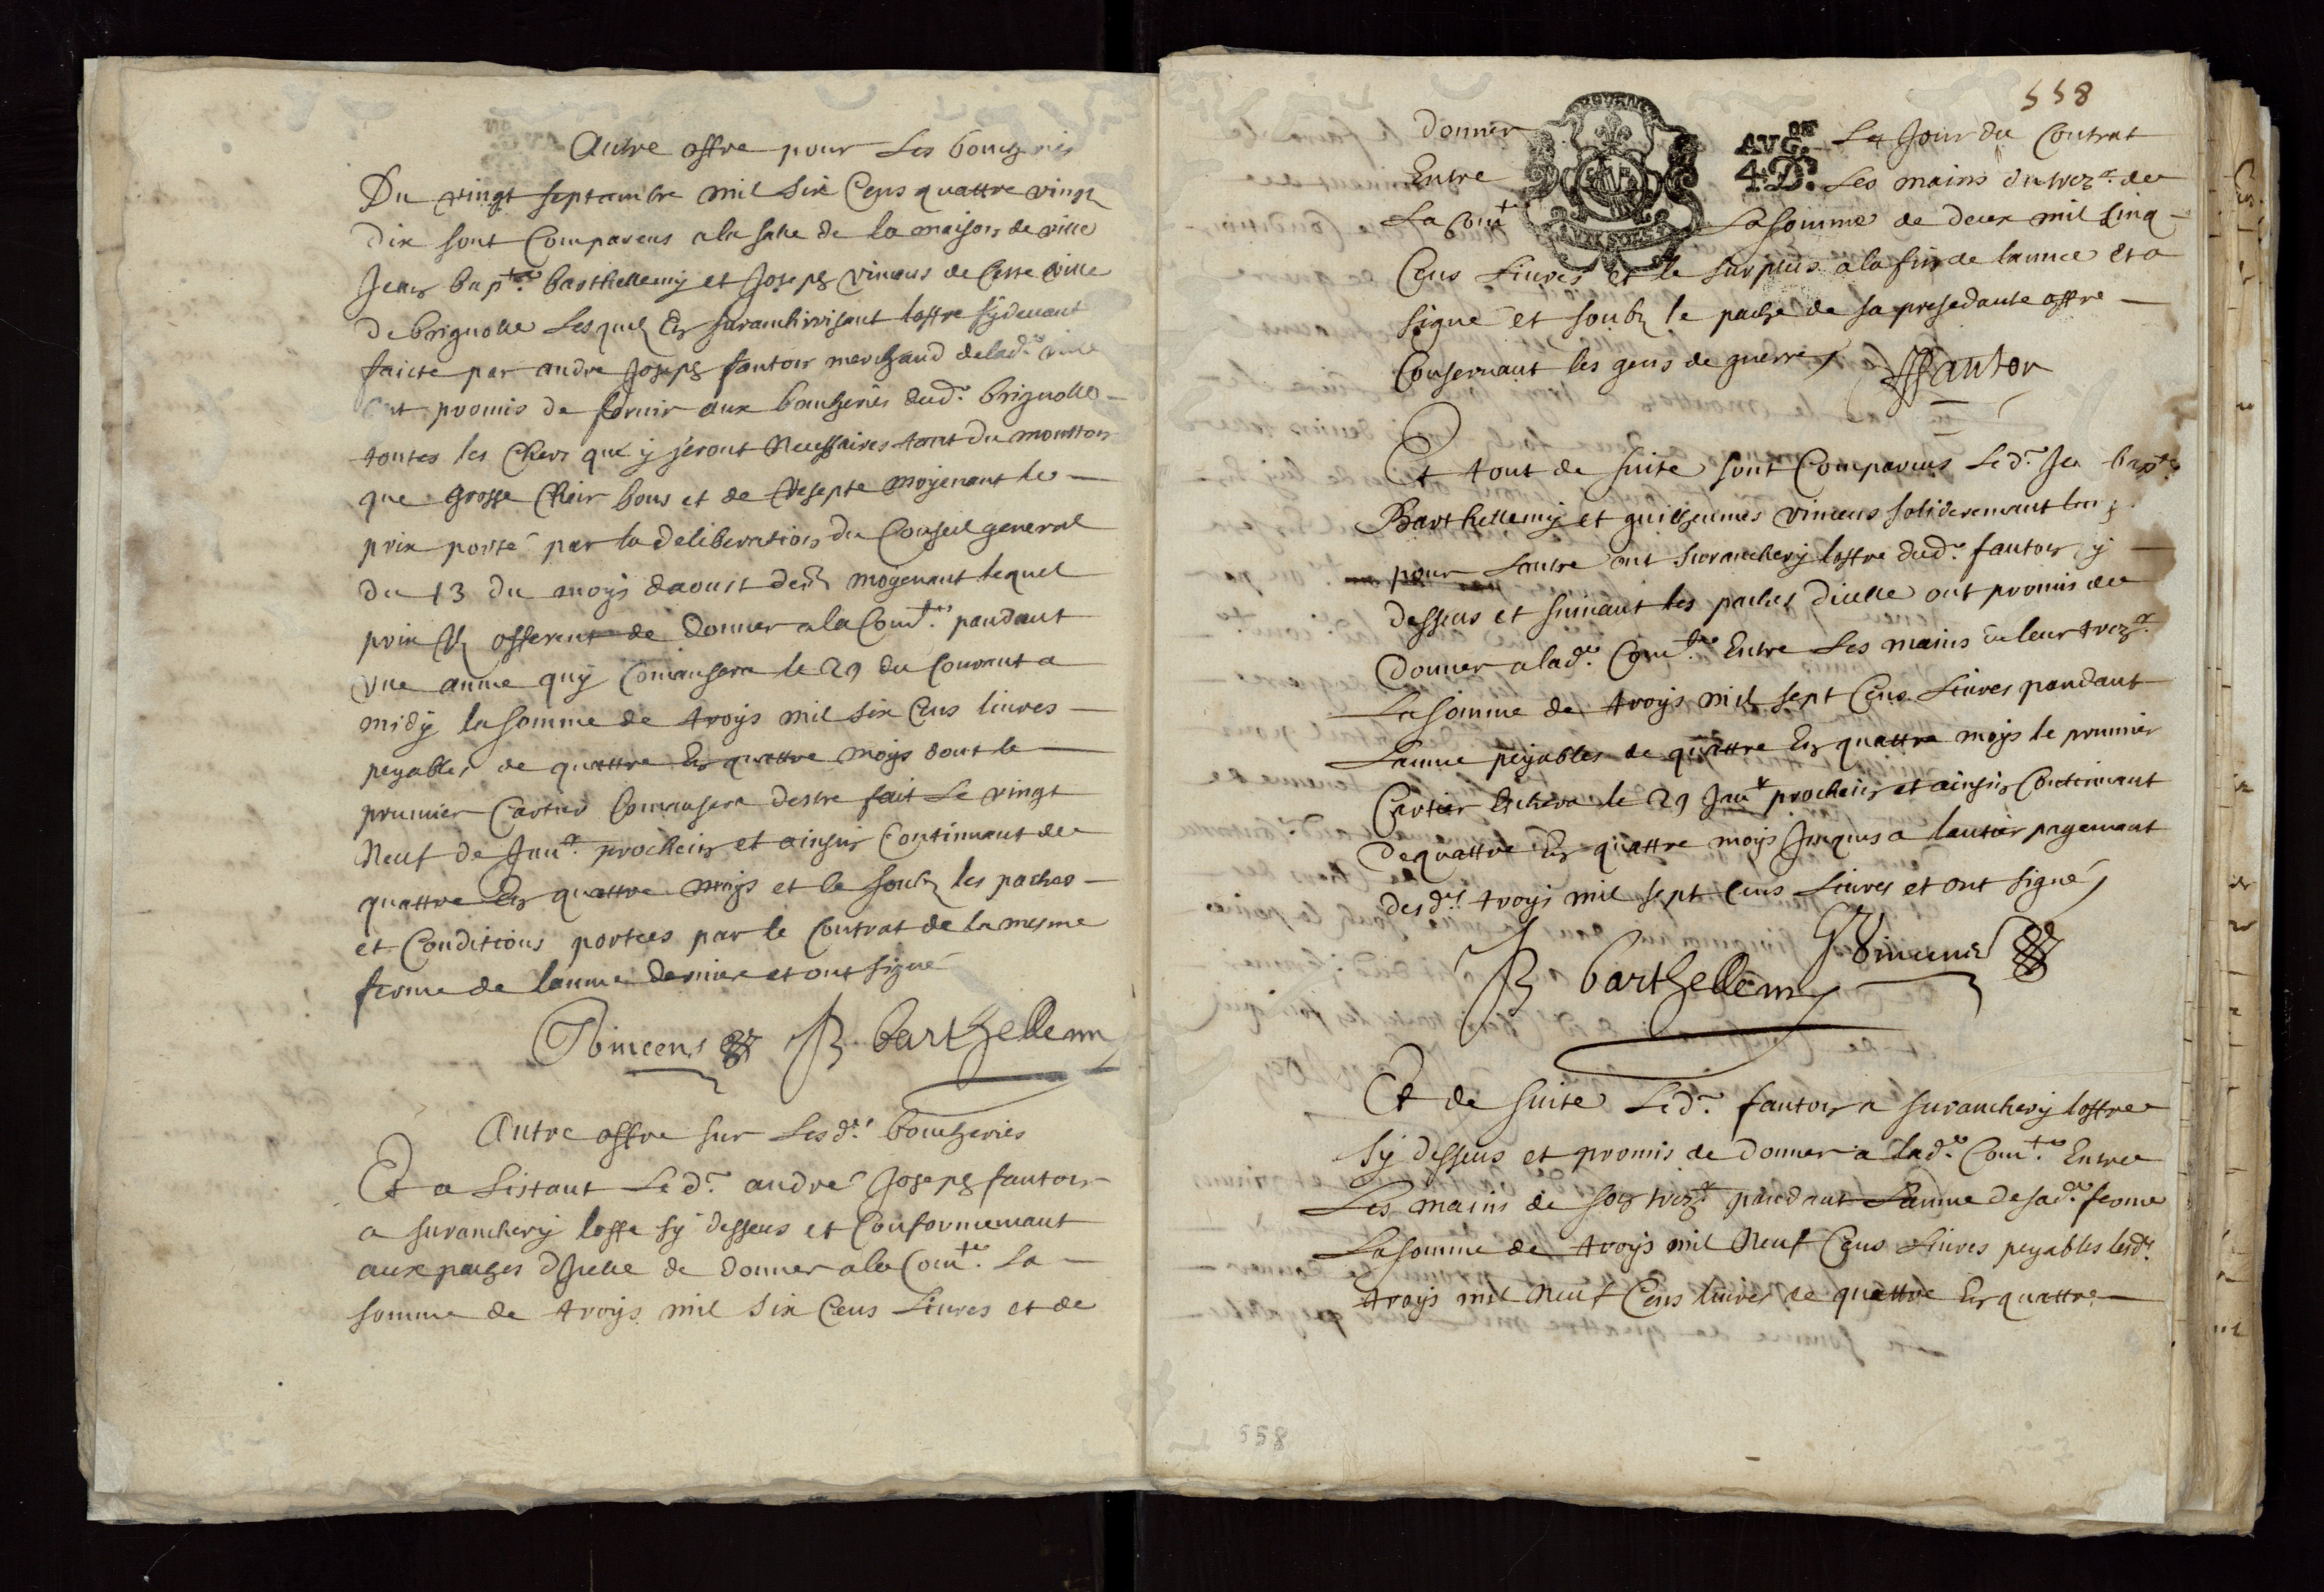 Autre offre pour Les boucheries
Du vingt septambre mil six Cens quattre vingt
dix sont Comparens a la sale de la maison de ville
Jean bap.te barthellemy et Joseph vincens de Cette ville
de brignolle Lesquelz En suranchirrisant loffre sy devant
faicte par andre Joseph fanton marchand de lad.e ville
ont promis de fornir aux boucheries dud.t brignolle
toutes les Chers que y seront Necessaires tant du moutton
que grosse Cheir bons et de Resepte moyenant le
prix porté par la deliberation du Conseil general
du 13 du moys daoust der.r moyenant lequel
prix Ilz offerent de donner a la Com.te pandant
Une annee quy Comansera le 29 du Courant a
midy la somme de troys mil six Cens livres
peyables de quattre En quattre moys dont le
prumier Cartier Comansera destre fait Le vingt
Neuf de Jan.er prochein et ainsin Continuant de
quattre En quattre moys et le soubz les paches
et Conditions portees par le Contrat de la mesme
ferme de lannee derniere et ont signé
J Vincens JB barthellemy
Autre offre sur Lesd.es boucheries
Et a Listant Led.t andré Joseph fanton
a suranchery loffe sy dessus et Conformemant
aux paches dIcelle de donner a la Com.te La
somme de troys mil six Cens Livres et de
558
donner Le Jour du Contrat
AVG.ON
4 D.
Entre Les mains du trez.er de
La Com.te La somme de deux mil Cinq
Cens Livres et le surplus a la fin de lannee et a
signé et soubz le pache de sa presedante offre
Consernant les gens de guerre
AJfanton
Et tout de suite sont Comparus Led.t Jea bap.te
Barthellemy et guilheumes vincens solideremant lun
pour Lautre ont suranchery loffre dud.t fanton sy
dessus et suivant les paches dicelle ont promis de
donner a lad.e Com.te Entre Les mains de leur trez.er
La somme de troys mil sept Cens Livres pandant
Lannee peyables de quattre En quattre moys le prumier
Cartier Eschera le 29 Jan.er prochein et ainsin Continuant
de quattre En quattre moys Jusques a lantier payemant
desd.es troys mil sept Cens Livres et ont signé
G Vincens
JB barthellemy
Et de suite Led.t fanton a suranchery loffre
sy dessus et promis de donner a lad.e Com.te Entre
Les mains de son trez.er pandant Lannee de sad.e ferme
La somme de troys mil Neuf Cens Livres peyables lesd.s
troys mil Neuf Cens livres de quattre En quattre
558